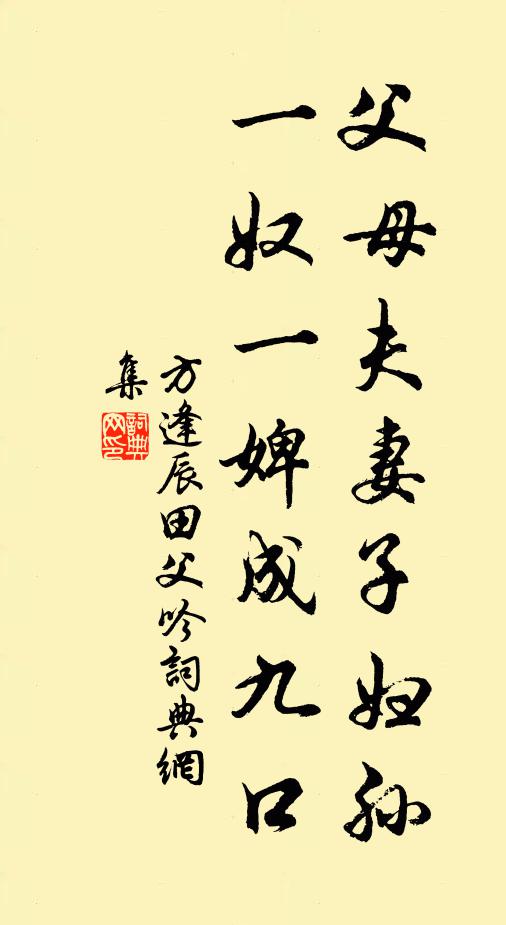 父母夫妻子妇孙
一奴一婢成九口
方逢辰田父吟詞典網
集
詞典
网印